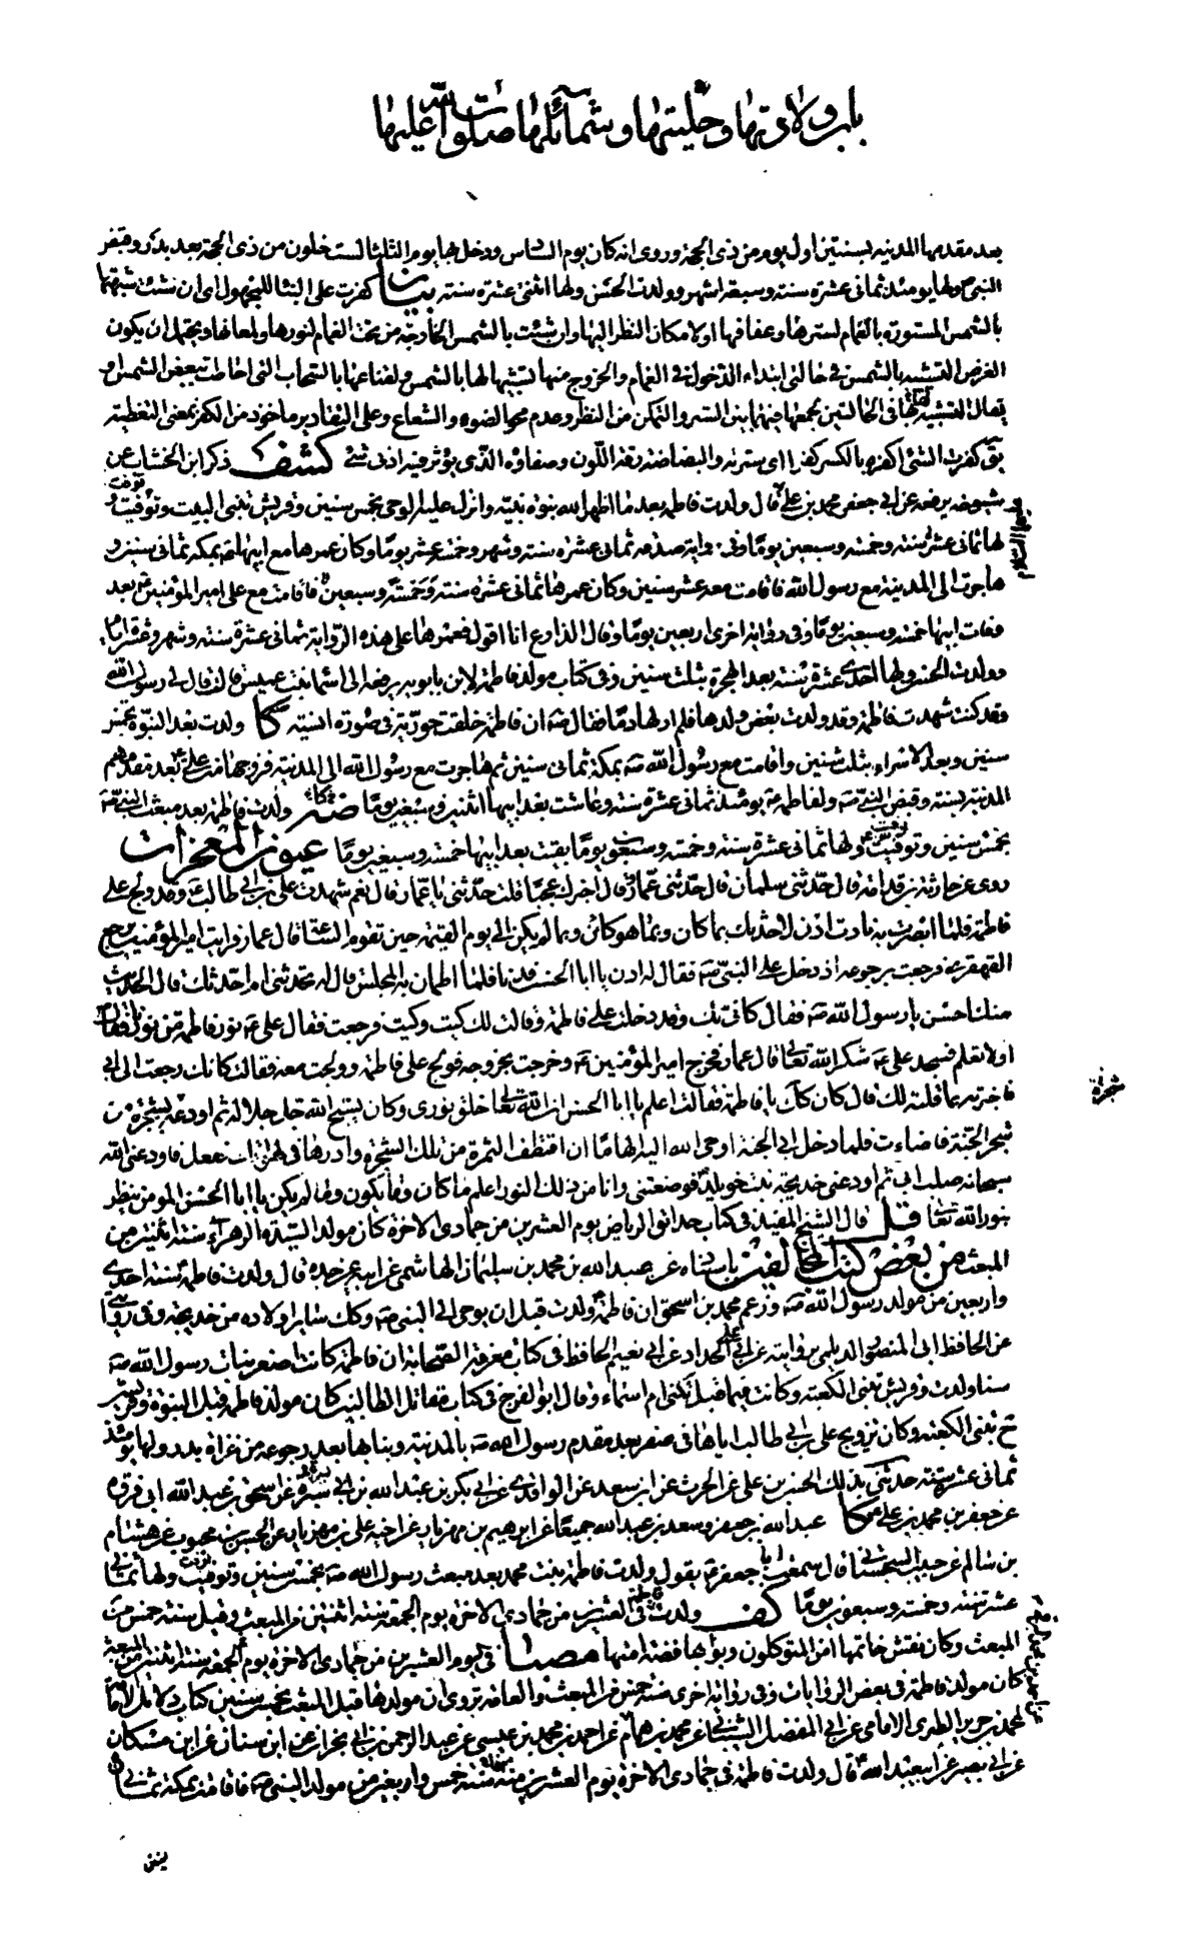 باب ولادتها وحليتها وشمائلها صلوات الله عليها
بعد مقدمها المدينة بسنتين اول يوم من ذى الحجة وروى انه كان يوم السادس ودخل بها يوم الثلثا لست خلون من ذى الحجة بعد بدر وقبض
النبى ولها يومئذ ثمانى عشرة سنة وسبعة اشهر وولدت الحسن ولها اثنتى عشرة سنة بيان كفرت على البناء للمجهول اى ان شئت شبهتها
بالشمس المستورة بالغمام لسترها وعفافها او لامكان النظر اليها وان شئت بالشمس الخارجة من تحت الغمام لنورها ولمعانها ويحتمل ان يكون
الغرض التشبيه بالشمس فى حالتى ابتداء الدخول فى الغمام والخروج منها تشبيها لها بالشمس ولقناعها بالسحاب التى احاطت ببعض الشمس او
يقال التشبيه بها فى الحالتين لجمعها فيهما بين الستر والتمكن من النظر وعدم محو الضوء والشعاع وعلى التقادير ماخوذ من الكفر بمعنى التغطية
يق كفرت الشئ اكفره بالكسر كفرا اى سترته والبضاضة رقة اللون وصفاؤه الذى يؤثر فيه ادنى شئ كشف ذكر ابن الخشاب عن
شيوخه يرفعه عن ابى جعفر محمد بن على قال ولدت فاطمة بعد ما اظهر الله نبوة نبيه وانزل عليه الوحى بخمس سنين وقريش تبنى البيت وتوفيت و
لها ثمانى عشر سنة وخمسة وسبعين يوما وفى رواية صدقة ثمانى عشرة سنة وشهر وخمسة عشر يوما وكان عمرها مع ابيها بمكة ثمانى سنين و
هاجرت الى المدينة مع رسول الله فاقامت معه عشر سنين وكان عمرها ثمانى عشرة سنة فاقامت مع على امير المؤمنين بعد
وفات ابيها خمسة وسبعين يوما وفى رواية اخرى اربعين يوما وقال الذارع انا اقول فعمرها على هذه الرواية ثمانى عشرة سنة وشهر وعشرة ايام
وولدت الحسن ولها احدى عشرة سنة بعد الهجرة بثلث سنين وفى كتاب مولد فاطمة لابن بابويه يرفعه الى اسماء بنت عميس قالت قال لى رسول الله
وقد كنت شهدت فاطمة وقد ولدت بعض ولدها فلم ار لها دما فقال ص ان فاطمة خلقت حورية فى صورة انسية كا ولدت بعد النبوة بخمس
سنين وبعد الاسراء بثلث سنين واقامت مع رسول الله ص بمكة ثمانى سنين ثم هاجرت مع رسول الله الى المدينة فزوجها من على بعد مقدمهم
المدينة بسنة وقبض النبى ص ولفاطمة ع يومئذ ثمانى عشرة سنة وعاشت بعد ابيها اثنين وسبعين يوما ضه ولدت فاطمة بعد مبعث النبى ص
بخمس سنين وتوفيت ولها ثمانى عشرة سنة وخمسة وسبعون يوما بقيت بعد ابيها خمسة وسبعين يوما عيون المعجزات
روى عن حارثة بن قدامة قال حدثنى سلمان قال حدثنى عمار وقال اخبرك عجبا قلت حدثنى يا عمار قال نعم شهدت على بن ابى طالب ع وقد ولج على
فاطمة فلما ابصرت به نادت ادن لاحدثك بما كان وبما هو كائن وبما لم يكن الى يوم القيمة حين تقوم الساعة قال عمار فرايت امير المؤمنين يرجع
القهقرى فرجعت برجوعه اذ دخل على النبى ص فقال له ادن يا ابا الحسن فدنا فلما اطمان به المجلس قال له تحدثنى ام احدثك قال الحديث
منك احسن يا رسول الله ص فقال كانى بك وقد دخلت على فاطمة وقالت لك كيت وكيت فرجعت فقال على ع نور فاطمة من نورنا فقال
اولا تعلم فسجد على ع شكرا لله تعالى قال عمار فخرج امير المؤمنين ع وخرجت بخروجه فولج على فاطمة وولجت معه فقالت كانك رجعت الى ابى
فاخبرته بما قلته لك قال كان كك يا فاطمة فقالت اعلم يا ابا الحسن ان الله تعالى خلق نورى وكان يسبح الله جل جلاله ثم اودعه بشجرة من
شجر الجنة فاضاءت فلما دخل ابى الجنة اوحى الله اليه الهاما ان اقتطف الثمرة من تلك الشجرة وادرها فى لهواتك ففعل فاودعنى الله
سبحانه صلب ابى ثم اودعنى خديجة بنت خويلد فوضعتنى وانا من ذلك النور اعلم ما كان وما يكون وما لم يكن يا ابا الحسن المومن ينظر
بنور الله تعالى قل قال الشيخ المفيد فى كتاب حدائق الرياض يوم العشرين من جمادى الاخرة كان مولد السيدة الزهراء سنة اثنتين من
المبعث من بعض كتب المخالفين باسناه عن عبيد الله بن محمد بن سليمان الهاشمى عن ابيه عن جده قال ولدت فاطمة سنة احدى
واربعين من مولد رسول الله ص وزعم محمد بن اسحق ان فاطمة ولدت قبل ان يوحى الى النبى ص وكك سائر اولاده من خديجة وفى رواية
عن الحافظ ابى المنصور الديلمى بروايته عن ابى على الحداد عن ابى نعيم الحافظ فى كتاب معرفة الصحابة ان فاطمة كانت اصغر بنات رسول الله ص
سنا ولدت وقريش تبنى الكعبة وكانت فيما قيل تكنى ام اسماء وقال ابو الفرج فى كتاب مقاتل الطالبيين كان مولد فاطمة قبل النبوة وقريش
ح تبنى الكعبة وكان تزويج على بن ابى طالب اياها فى صفر بعد مقدم رسول الله ص بالمدينة وبنا بها بعد رجوعه من غزاة بدر ولها يومئذ
ثمانى عشرة سنة حدثنى بذلك الحسن بن على عن الحرث عن ابن سعد عن الواقدى عن ابى بكر بن عبد الله بن ابى سبرة عن اسحق بن عبد الله ابى فروة
عن جعفر بن محمد بن على ع كا عبد الله بن جعفر وسعد بن عبد الله جميعا عن ابرهيم بن مهزيار عن اخيه على بن مهزيار عن الحسن بن محبوب عن هشام
بن سالم عن حبيب السجستانى قال سمعت ابا جعفر ع يقول ولدت فاطمة بنت محمد بعد مبعث رسول الله ص بخمس سنين وتوفيت ولها ثمانى
عشرة سنة وخمسة وسبعون يوما كف ولدت فاطمة فى العشرين من جمادى الاخرة يوم الجمعة سنة اثنتين من المبعث وقيل سنة خمس من
المبعث وكان نقش خاتمها امن المتوكلون وبوابها فضة امتها مصبا فى يوم العشرين من جمادى الاخرة يوم الجمعة سنة اثنتين من المبعث
كان مولد فاطمة فى بعض الروايات وفى رواية اخرى سنة خمس من المبعث والعامة تروى ان مولدها قبل المبعث بخمس سنين كتاب دلائل الامامة
لمحمد بن جرير الطبرى الامامى عن ابى المفضل الشيبانى عن محمد بن همام عن احمد بن محمد بن عيسى عن عبد الرحمن بن ابى نجران عن ابن سنان عن ابن مسكان
عن ابى بصير عن ابى عبد الله ع قال ولدت فاطمة فى جمادى الاخرة يوم العشرين منه سنة خمس واربعين من مولد النبى ص فاقامت بمكة ثمانى
شجرة
سنين